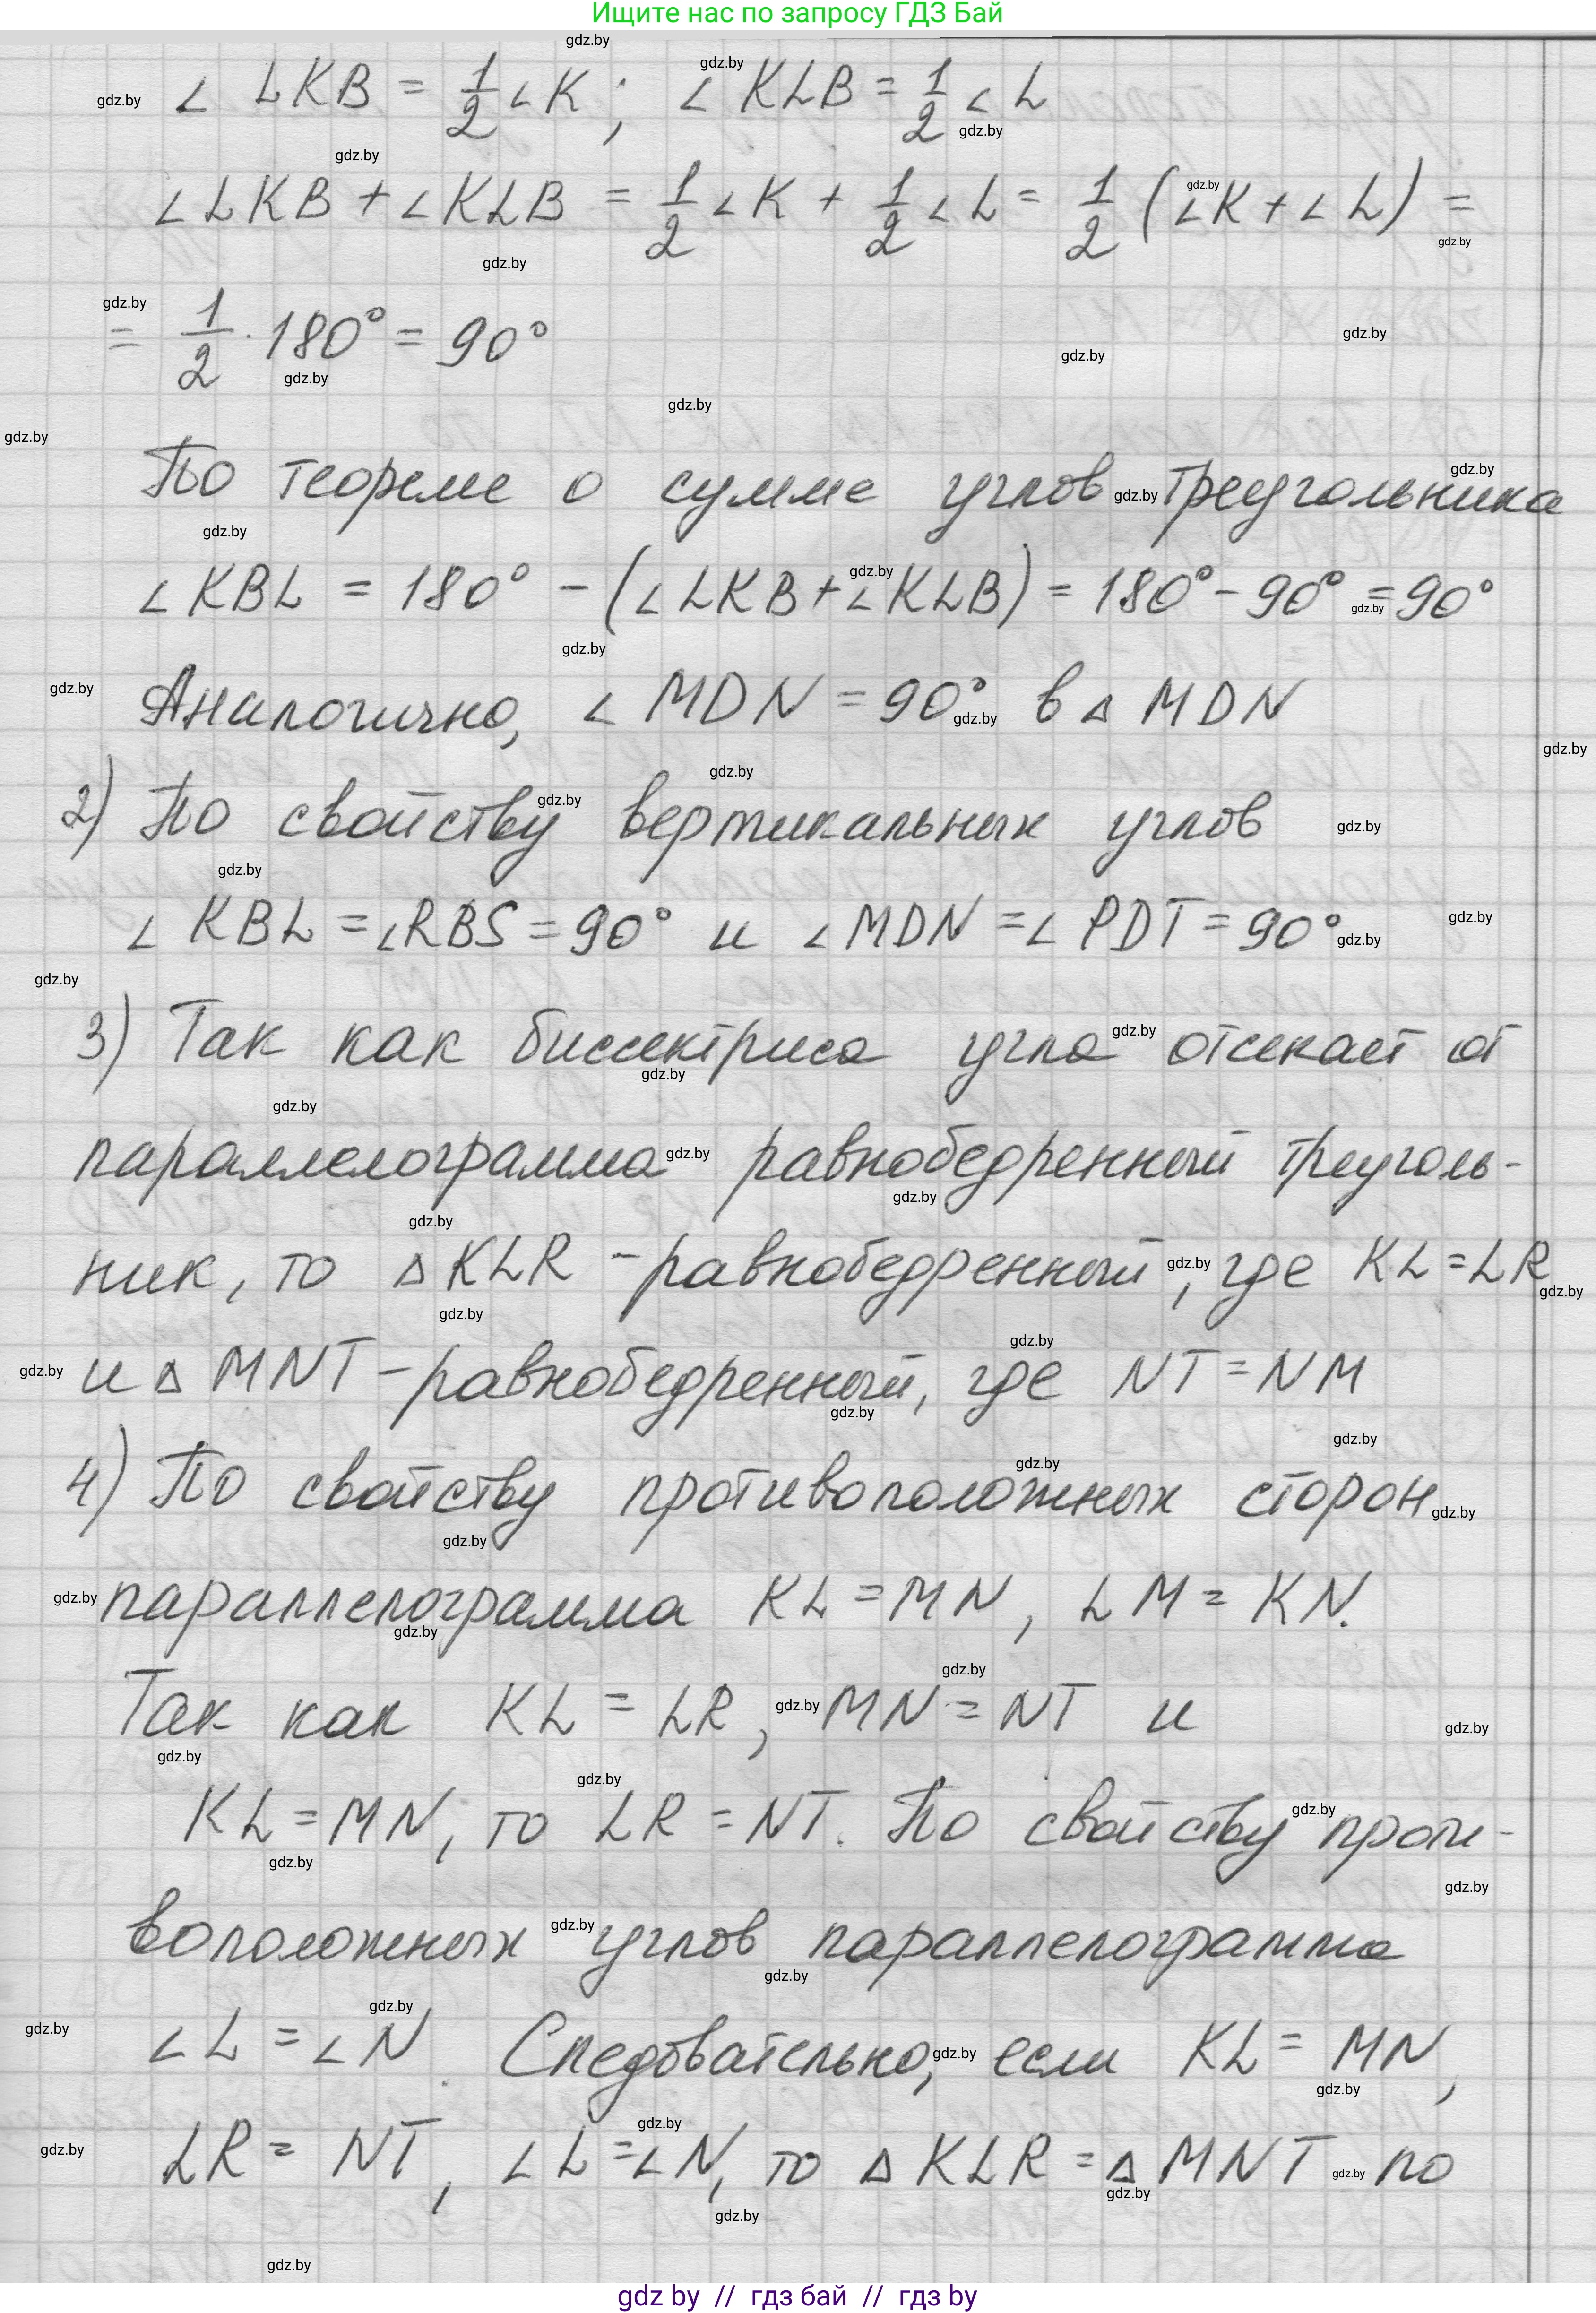 Ищите нас по запросу ГДЗ Бай
∠ LKB = 1/2 ∠K ; ∠ KLB = 1/2 ∠ L
∠ LKB + ∠KLB = 1/2 ∠K + 1/2 ∠ L = 1/2 (∠K + ∠ L) =
= 1/2 · 180° = 90°
По теореме о сумме углов треугольника
∠ KBL = 180° - (∠ LKB + ∠KLB) = 180° - 90° = 90°
Аналогично, ∠ MDN = 90° в △ MDN
2) По свойству вертикальных углов
∠ KBL = ∠RBS = 90° и ∠ MDN = ∠ PDT = 90°
3) Так как биссектриса угла отсекает от
параллелограмма равнобедренный треуголь-
ник, то △ KLR - равнобедренный, где KL = LR
и △ MNT - равнобедренный, где NT = NM
4) По свойству противоположных сторон
параллелограмма KL = MN, LM = KN.
Так как KL = LR, MN = NT и
KL = MN, то LR = NT. По свойству проти-
воположных углов параллелограмма
∠ L = ∠ N. Следовательно, если KL = MN,
LR = NT, ∠ L = ∠ N, то △ KLR = △ MNT по
gdz by // гдз бай // гдз by